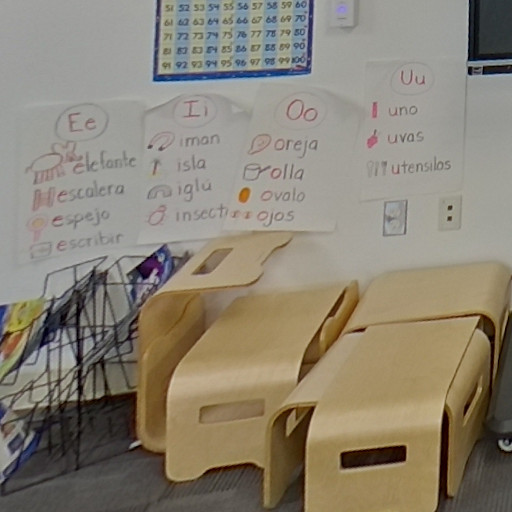 51 52 53 54 55 56 57 58 59 60
61 62 63 64 65 66 67 68 69 70
71 72 73 74 75 76 77 78 79 80
81 82 83 84 85 86 87 88 89 90
91 92 93 94 95 96 97 98 99 100
Ee
elefante
escalera
espejo
escribir
Ii
iman
isla
iglú
insect
Oo
oreja
olla
ovalo
ojos
Uu
uno
uvas
utensilos